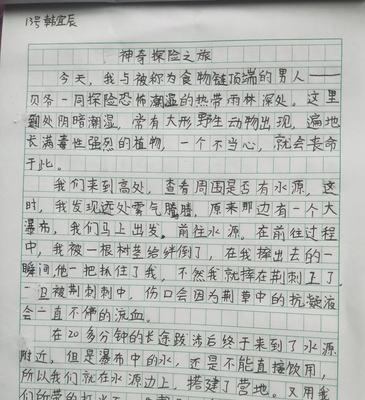 13号韩宜辰
神奇探险之旅
今天，我与被称为食物链顶端的男人——
贝爷一同探险恐怖潮湿的热带雨林深处。这里
到处阴暗潮湿，常有大形野生动物出现，遍地
长满毒性强烈的植物，一个不当心，就会丧命
于此。
我们来到高处，查看周围是否有水源，这
时，我发现远处雾气腾腾，原来那边有一个大
瀑布，我们马上出发。前往水源。在前往过程
中，我被一根树茎给绊倒了，在我摔出去的一
瞬间他一把抓住了我，不然我就摔在荆刺上了
一旦被荆刺刺中，伤口会因为荆草中的抗凝液
会一直不停的流血。
在20多分钟的长途跋涉后终于来到了水源
附近，但是瀑布中的水，还是不能直接饮用，
所以我们就在水源边上，搭建了营地。又用我
们所带的